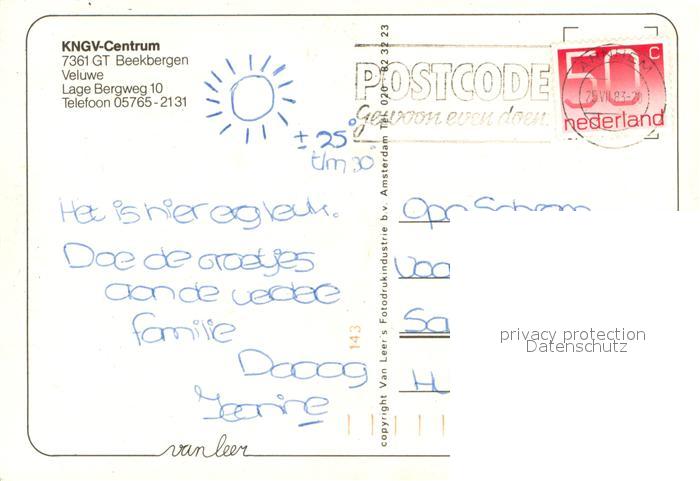 KNGV-Centrum
7361 GT Beekbergen
Veluwe
Lage Bergweg 10
Telefoon 05765-2131
± 25°
t/m 30°
Het is hier erg leuk.
Doe de groetjes
aan de
familie
Daaag
Jeanine
van leer
143
copyright Van Leer's Fotodrukindustrie b.v. Amsterdam Tel. 020 - 82 32 23
POSTCODE
gewoon even doen.
50 c
nederland
ARNHEM
25 VII 83-2
Opa
Voo
Sa
H
privacy protection
Datenschutz